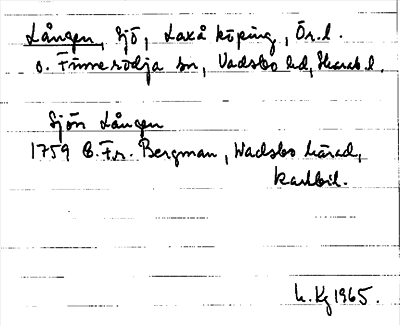 Lången, sjö, Laxå köping, Ör.l.
o. Finnerödja sn, Vadsbo hd, Skarab.l.
Sjön Lången
1759 C.Fr. Bergman, Wadsbo härad,
kartbil.
L. Kg 1965.